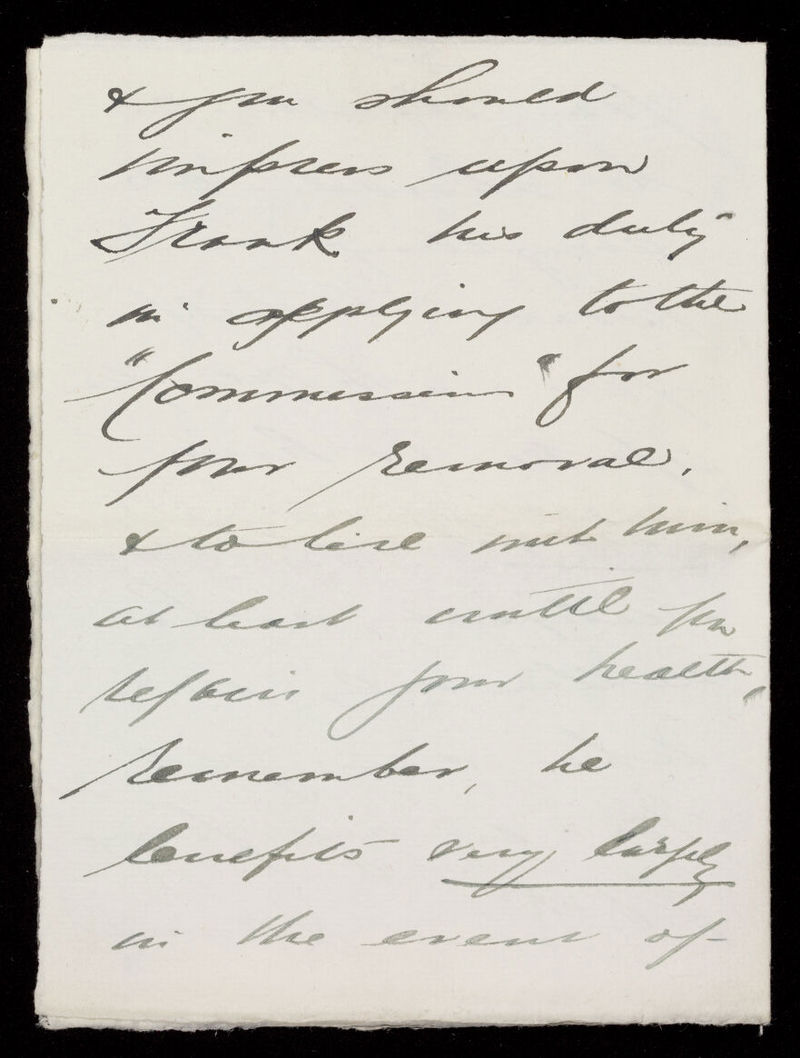 & you should
impress upon
Frank his duty
in applying to the
"Commission" for
your removal.
& to live with him,
at least until you
regain your health,
remember, he
benefits very largely
in the event of